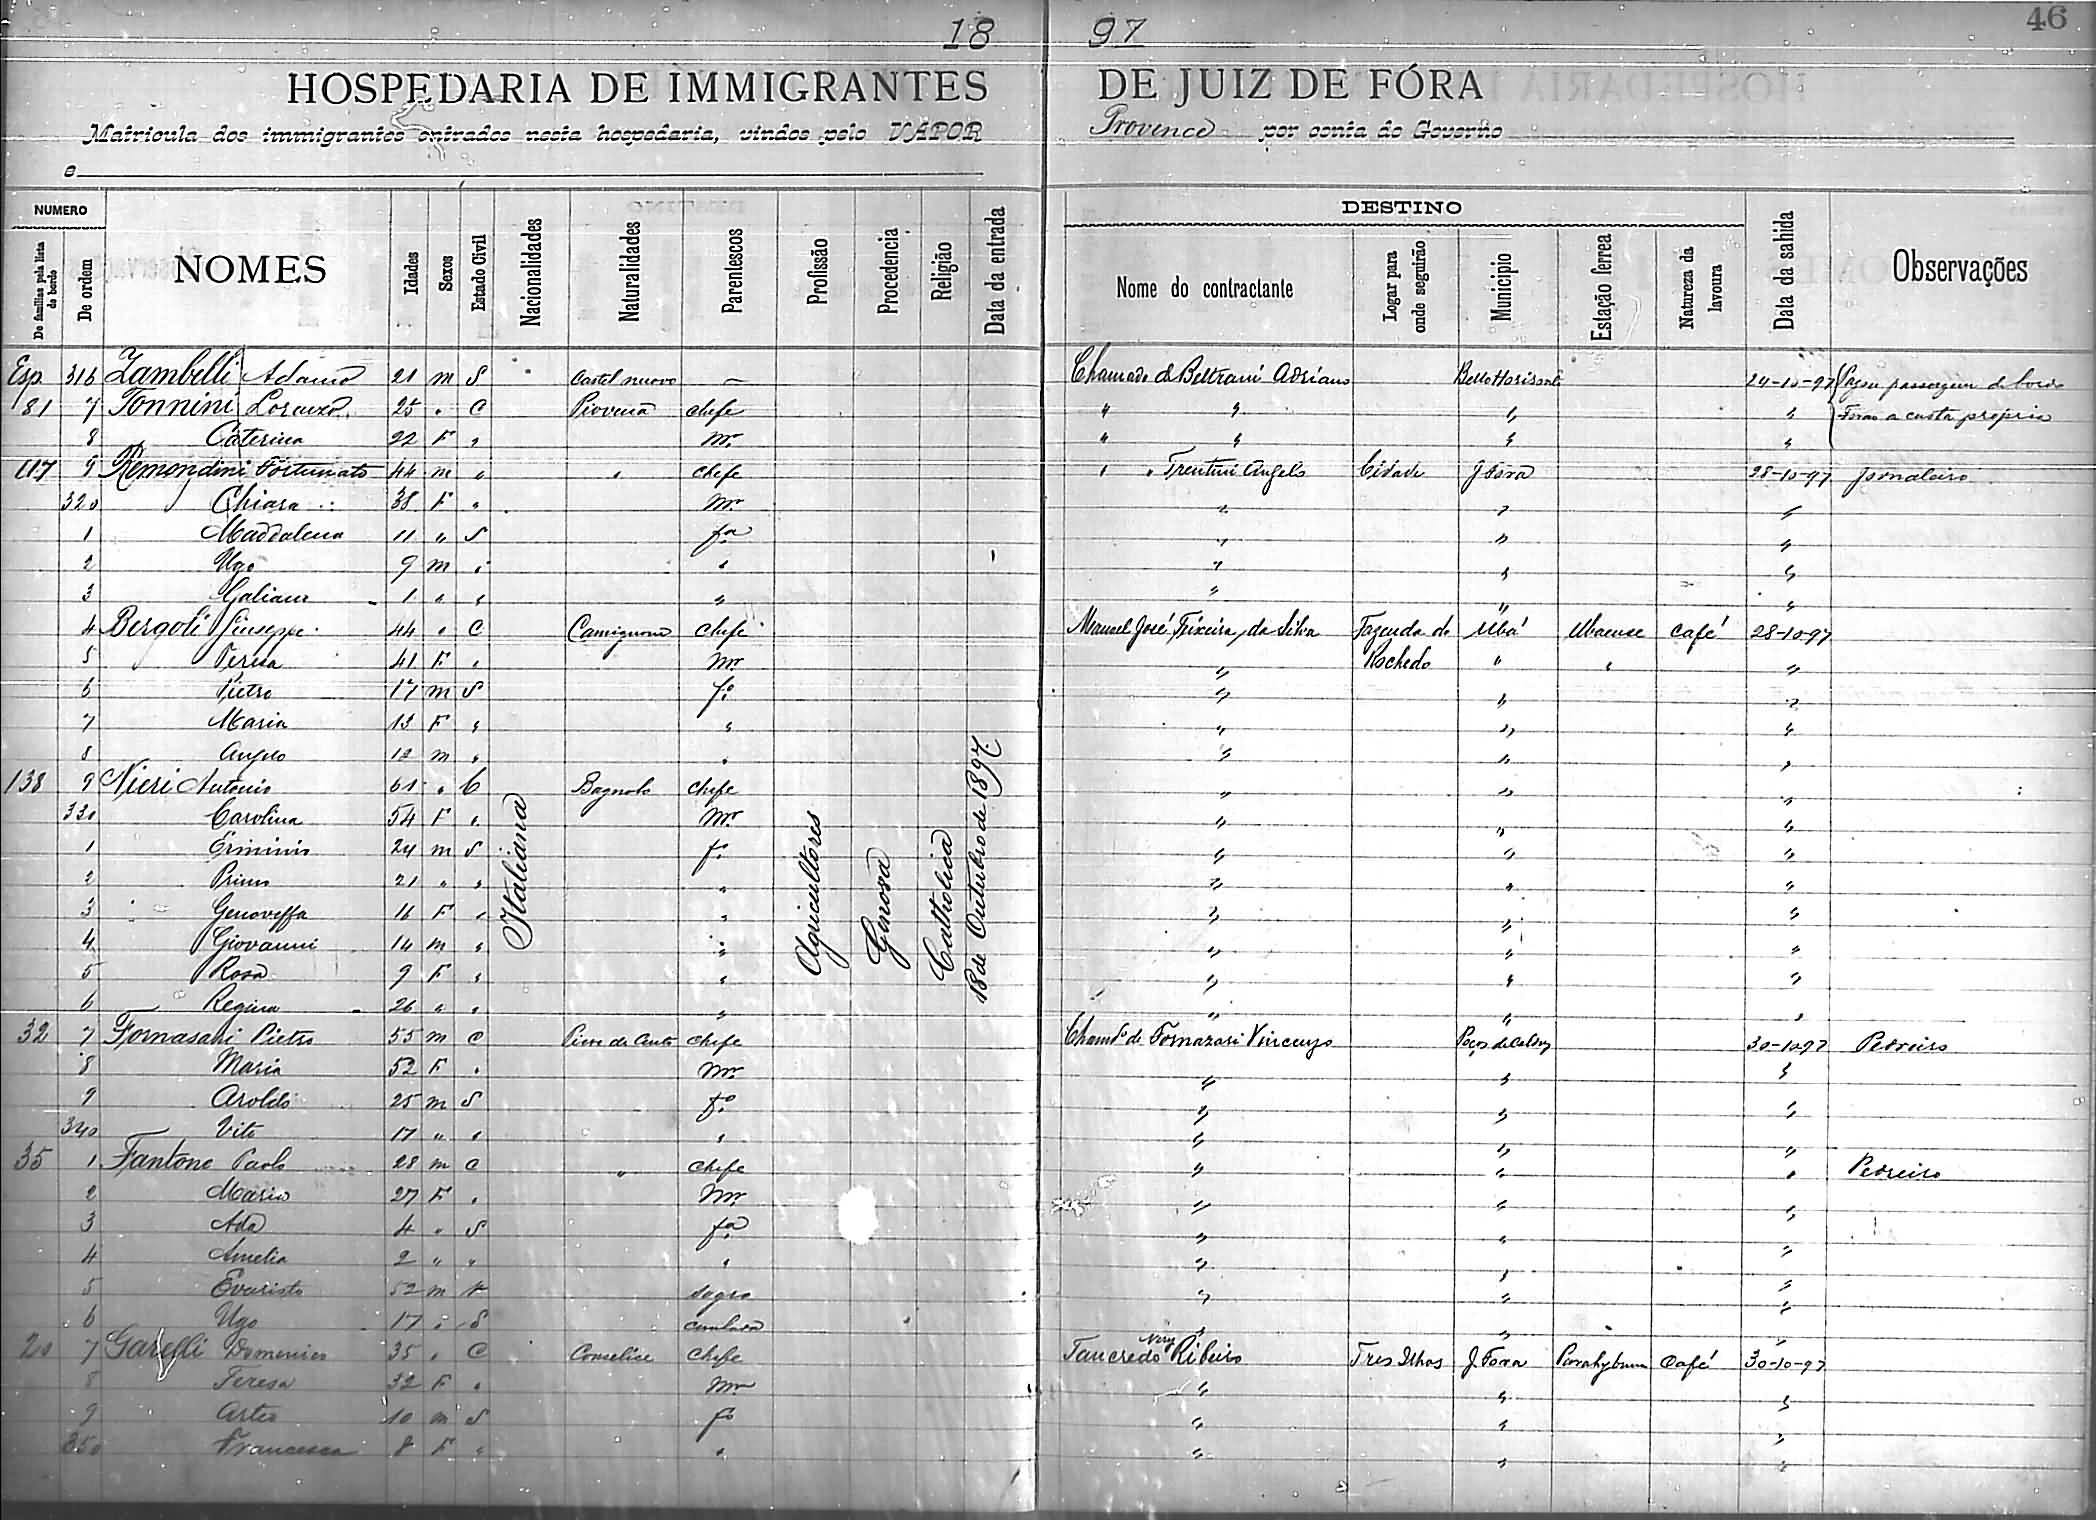 18 97
46
HOSPEDARIA DE IMMIGRANTES DE JUIZ DE FÓRA
Matricula dos immigrantes entrados nesta hospedaria, vindos pelo VAPOR Provence por conta do Governo
e
NUMERO
DESTINO
De familias pela lista de bordo De ordem NOMES Idades Sexos Estado Civil Nacionalidades Naturalidades Parentescos Profissão Procedencia Religião Data da entrada Nome do contractante Logar para onde seguirão Municipio Estação ferrea Natureza da lavoura Data da sahida Observações
Italiana
Agricultores
Genova
Catholica
18 de Outubro de 1897.
Esp. 316 Zambelli Adamo 21 m S Castel nuovo — Chamado de Beltrami Adriano Bello Horisonte 24-10-97 Pagou passagem de bordo
81 7 Tonnini Lorenzo 25 " C Piovena chefe " " " " Foram a custa propria
8 Caterina 22 F " Mr. " " " "
117 9 Remondini Fortunato 44 m " " chefe " " Trentini Angelo Cidade J. Fora 28-10-97 Jornaleiro
320 Chiara 38 F " Mr. " " "
1 Maddalena 11 " S fa " " "
2 Ugo 9 m " " " " "
3 Galiano 1 " " " " " "
4 Bergoli Giuseppe 44 " C Camignone chefe Manuel José Teixeira da Silva Fazenda do Ubá Ubaense Café 28-10-97
5 Teresa 41 F " Mr. " Rochedo " " "
6 Pietro 17 m S fo " " "
7 Maria 13 F " " " " "
8 Angelo 12 m " " " " "
138 9 Nieri Antonio 61 " C Bagnolo chefe " " "
330 Carolina 54 F " Mr. " " "
1 Erminio 24 m S fo " " "
2 Primo 21 " " " " " "
3 Genoveffa 16 F " " " " "
4 Giovanni 14 m " " " " "
5 Rosa 9 F " " " " "
6 Regina 26 " " " " " "
32 7 Fornasari Pietro 55 m C Pieve de Cento chefe Chamdo de Fornazari Vincenzo Poços de Caldas 30-10-97 Pedreiro
8 Maria 52 F " Mr. " " "
9 Aroldo 25 m S fo " " "
340 Vito 17 " " " " " "
35 1 Fantone Paolo 28 m C " chefe " " " Pedreiro
2 Maria 27 F " Mr. " " "
3 Ada 4 " S fa " " "
4 Amelia 2 " " " " " "
5 Evaristo 52 m V sogro " " "
6 Ugo 17 " S cunhado " " "
20 7 Garelli Domenico 35 " C Conselice chefe Tancredo Nery Ribeiro Tres Ilhas J. Fora Parahybuna Café 30-10-97
8 Teresa 32 F " Mr " " "
9 Arteo 10 m S fo " " "
350 Francesca 8 F " " " " "